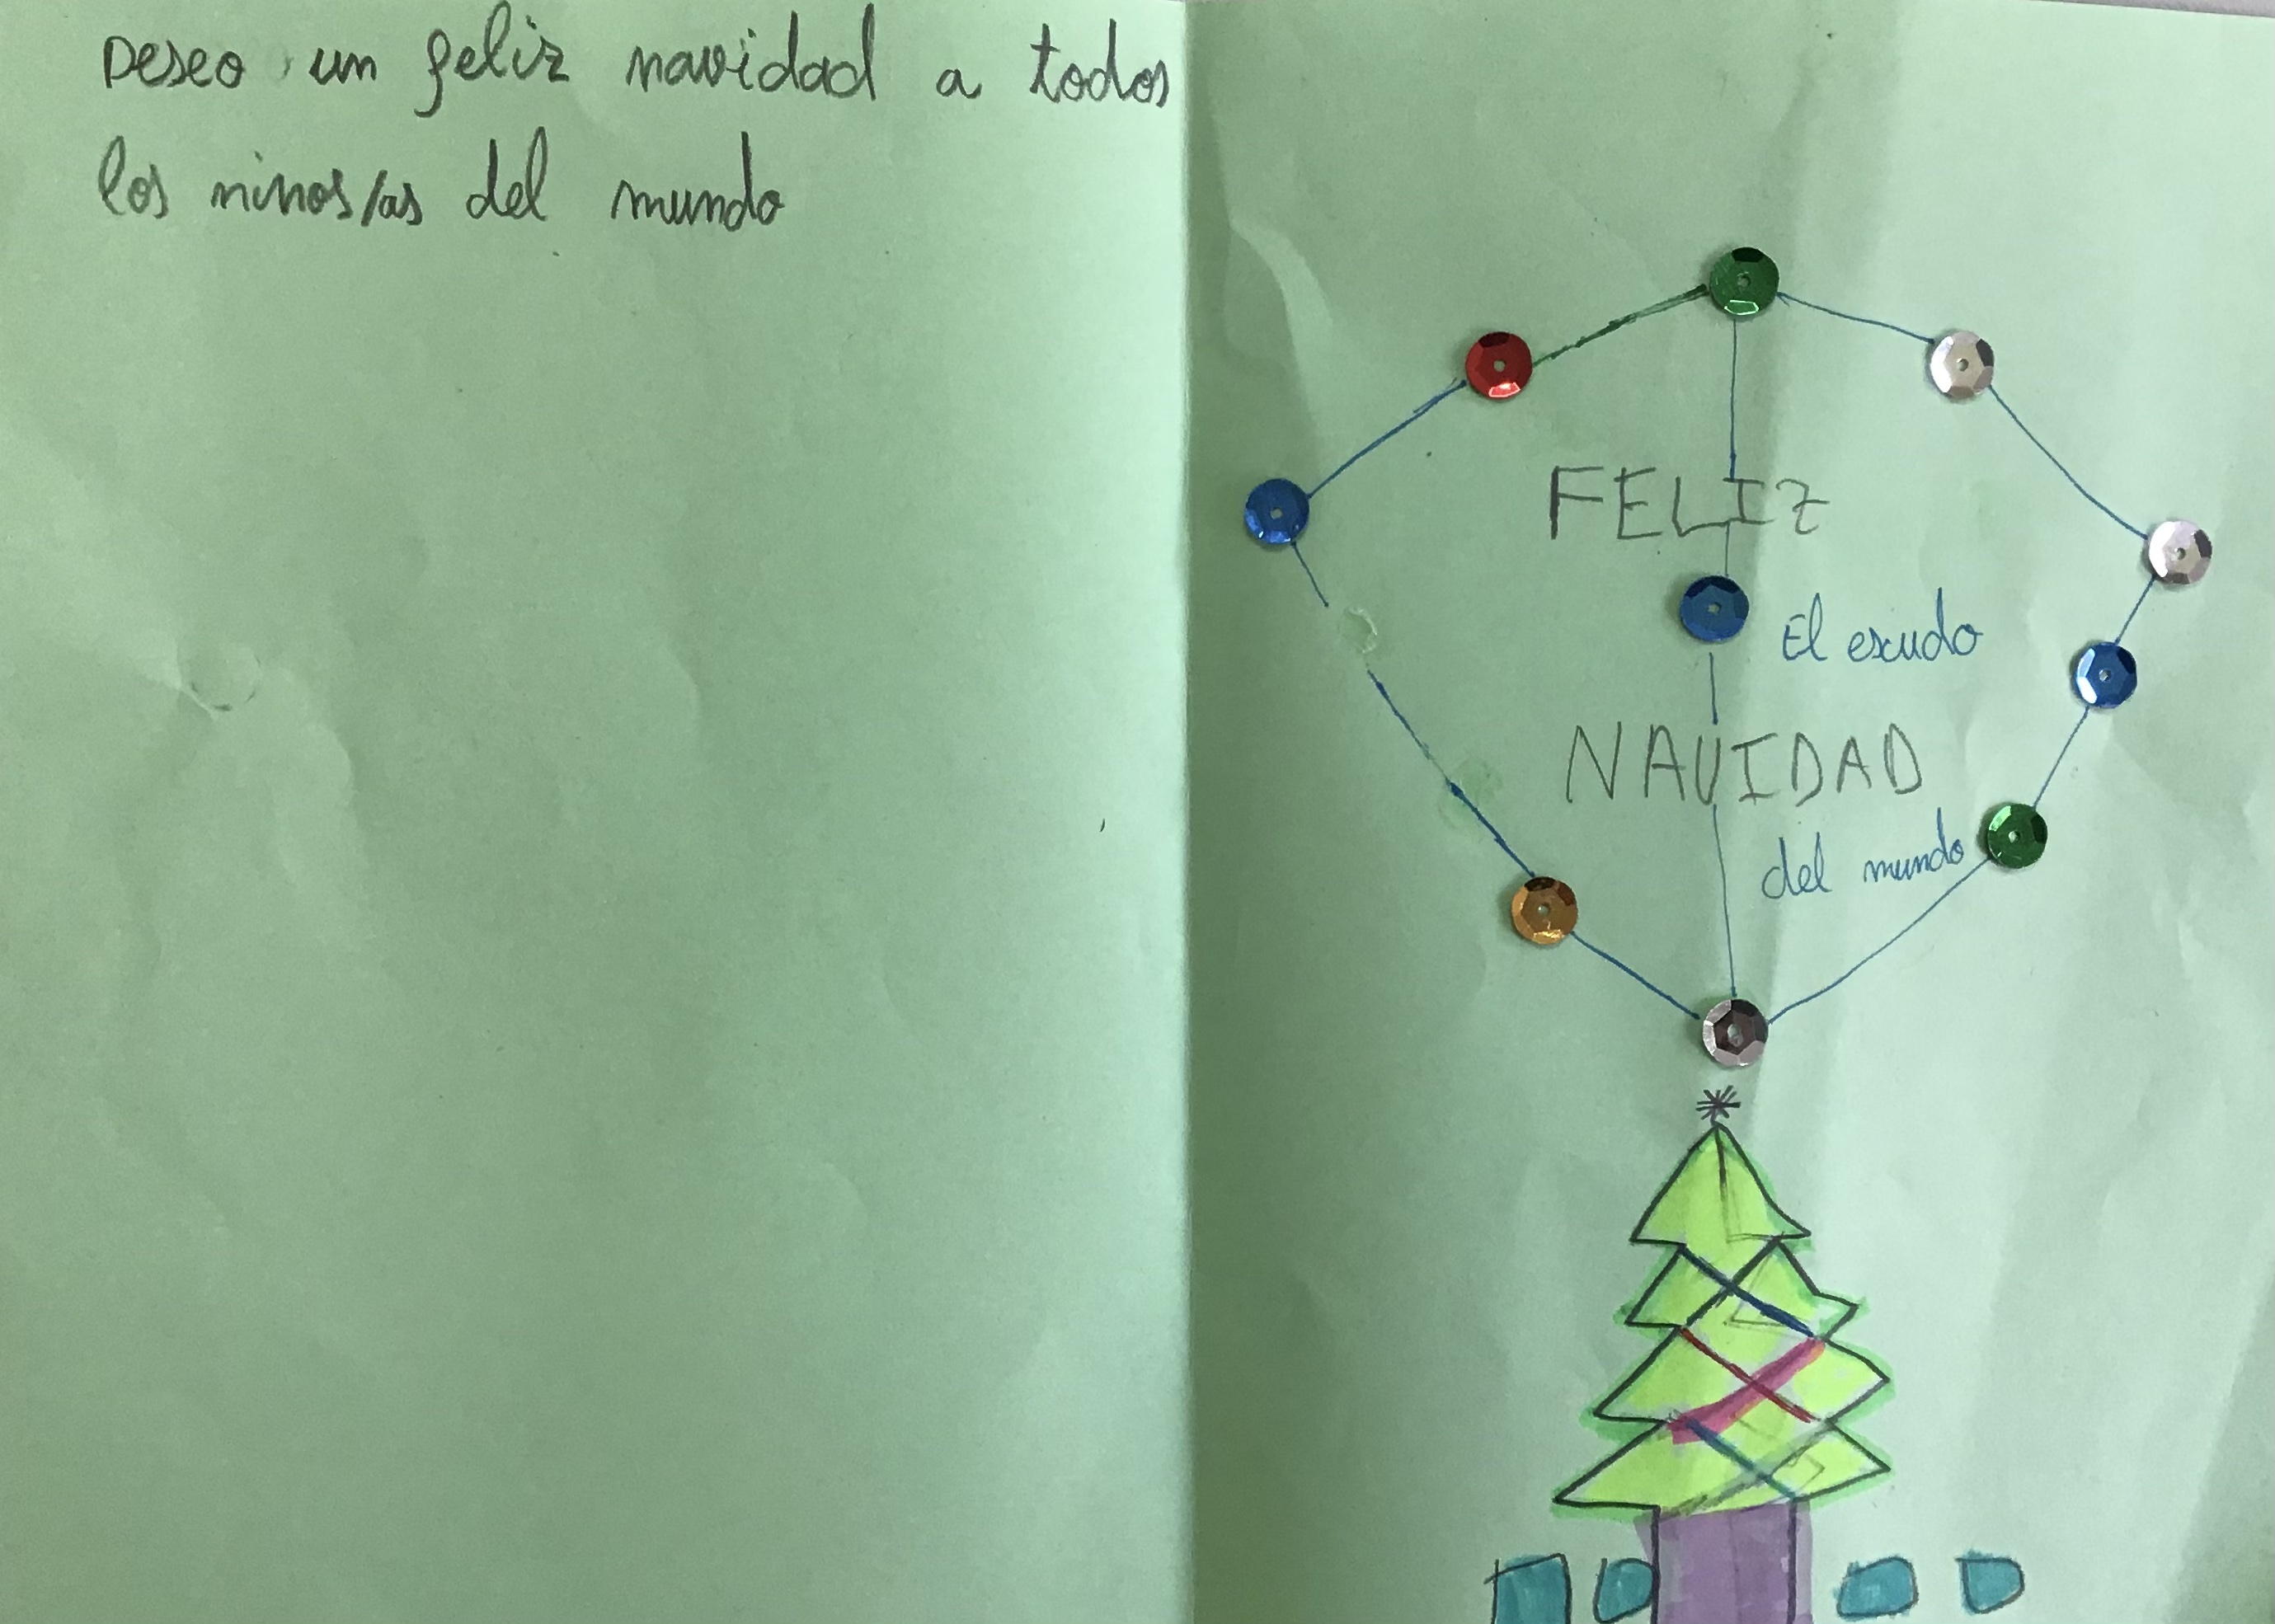 Deseo un feliz navidad a todos
los ninos/as del mundo
FELIZ
El escudo
NAVIDAD
del mundo